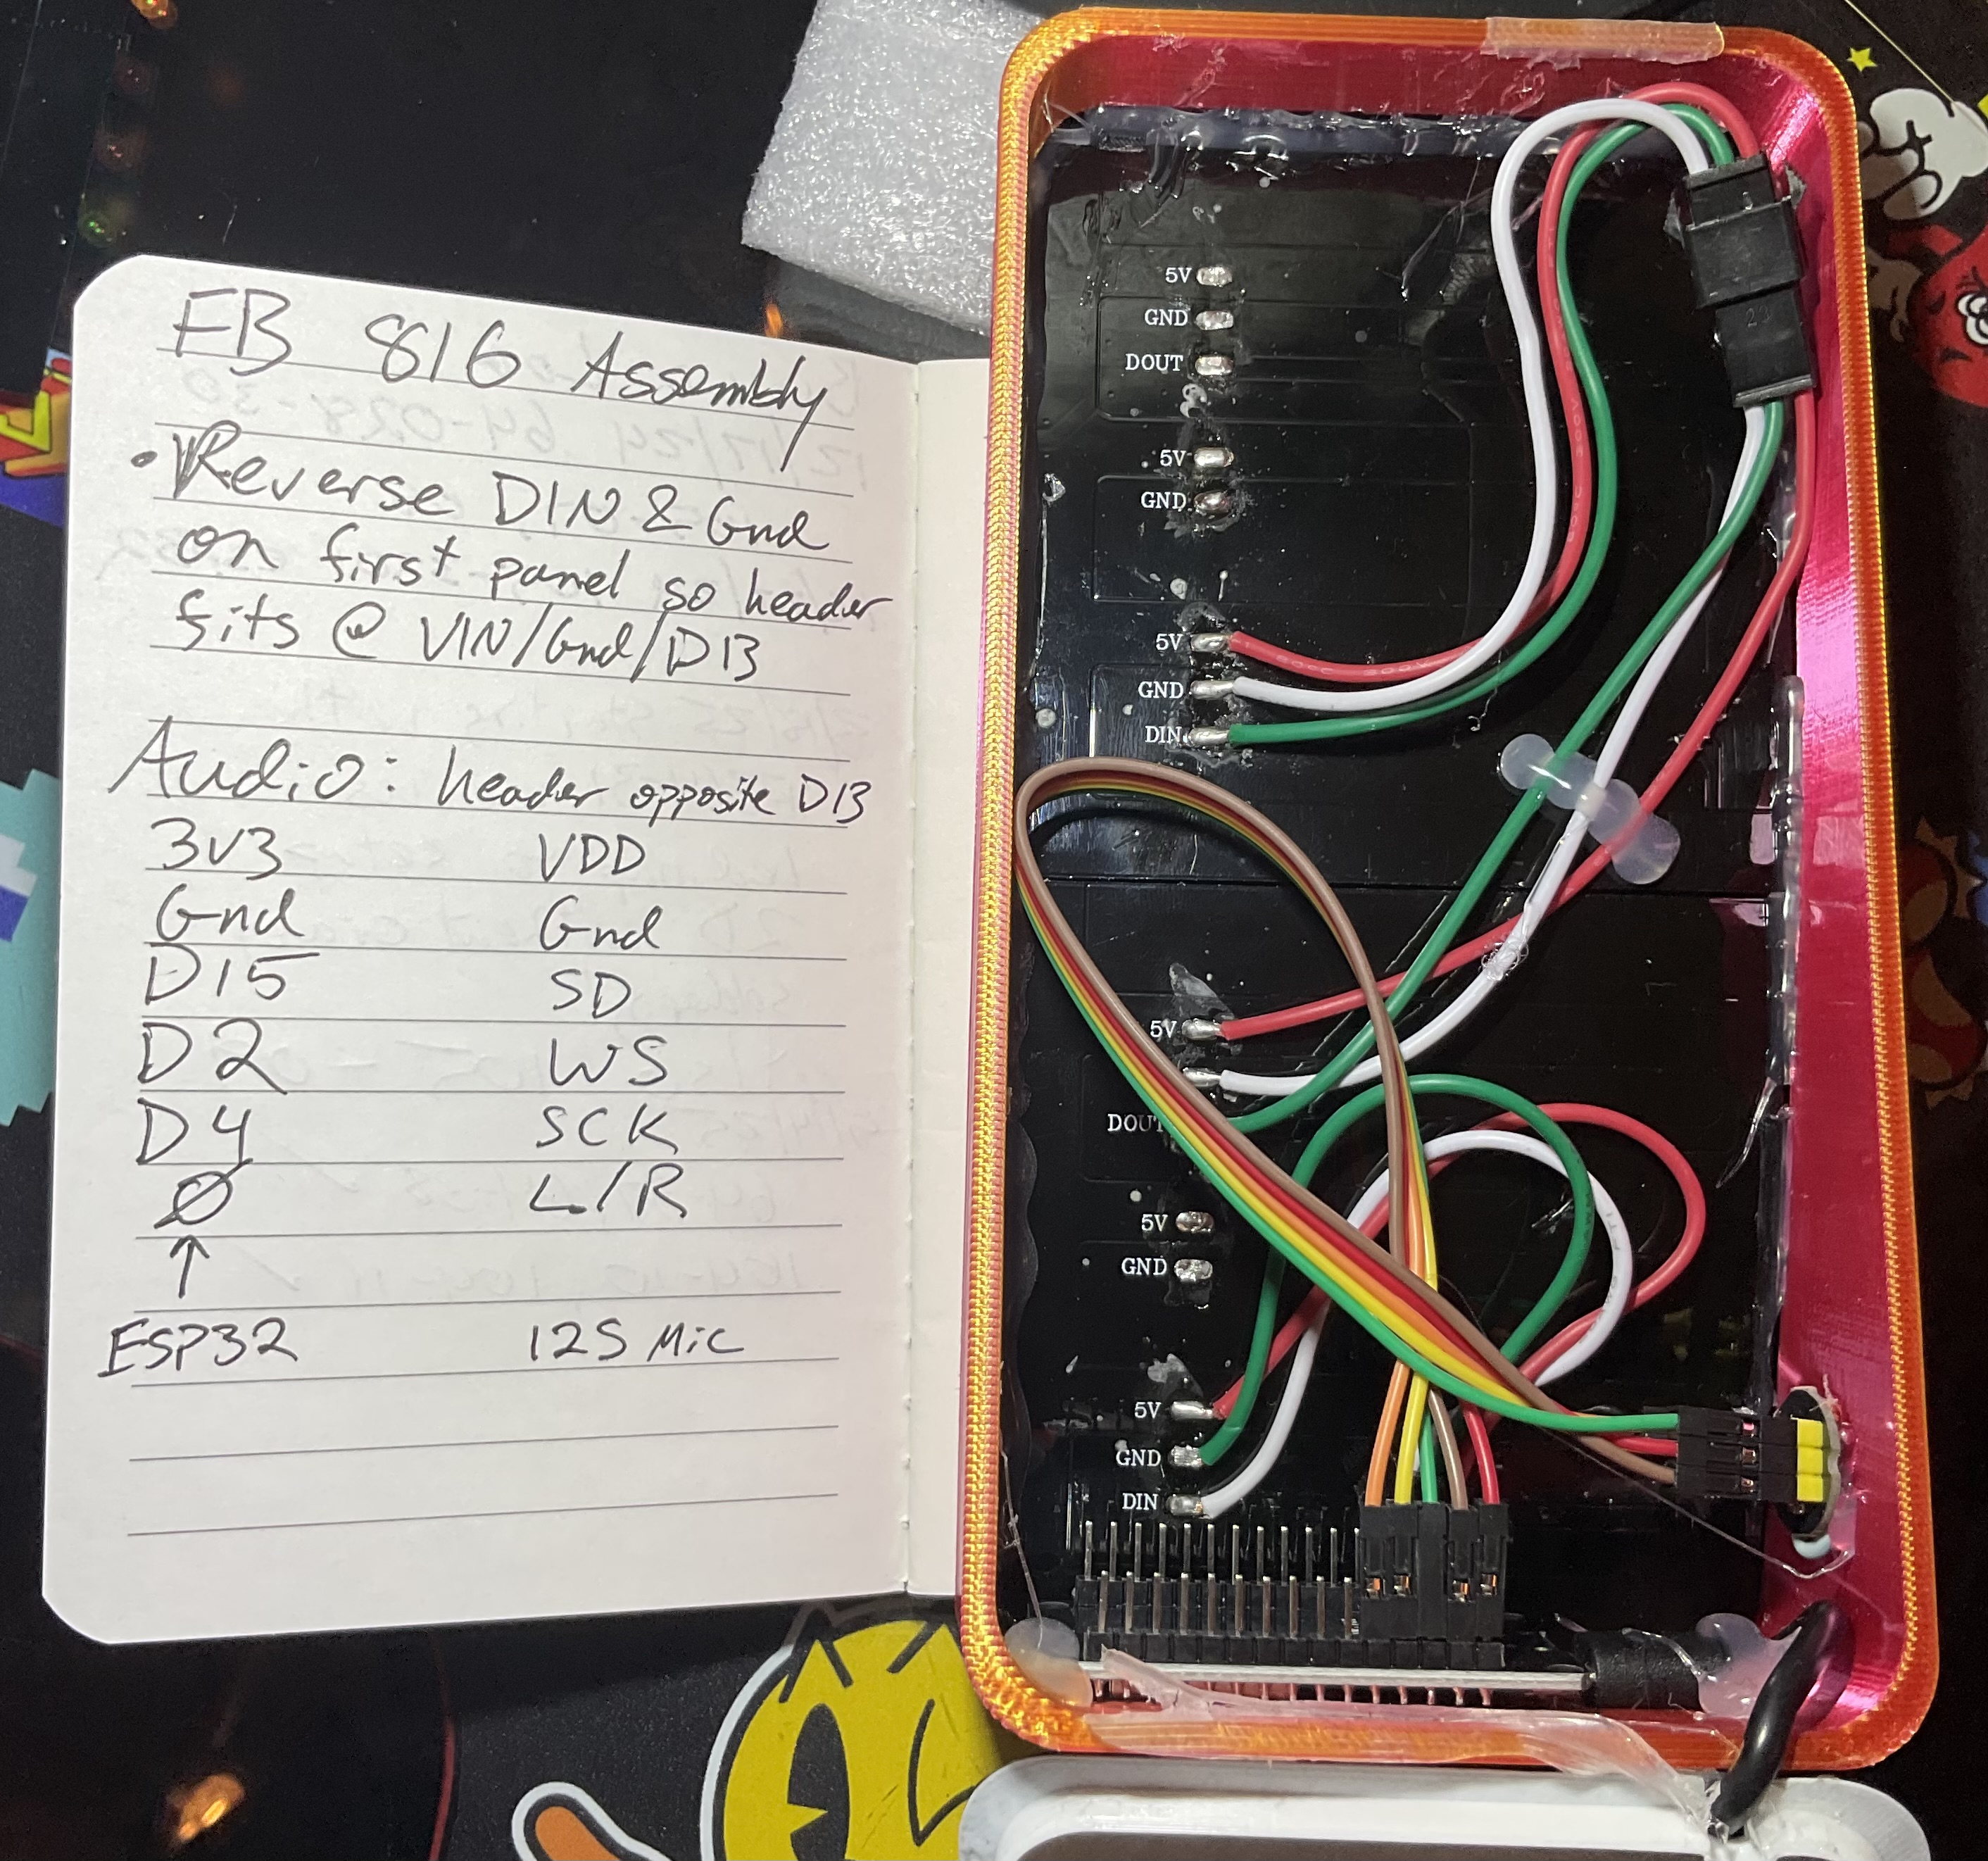 FB 816 Assembly
• Reverse DIN & Gnd
on first panel so header
fits @ VIN/Gnd/D13
Audio: header opposite D13
3v3 VDD
Gnd Gnd
D15 SD
D2 WS
D4 SCK
Ø L/R
↑
ESP32 I2S Mic
5V
GND
DOUT
5V
GND
5V
GND
DIN
5V
DOUT
5V
GND
5V
GND
DIN